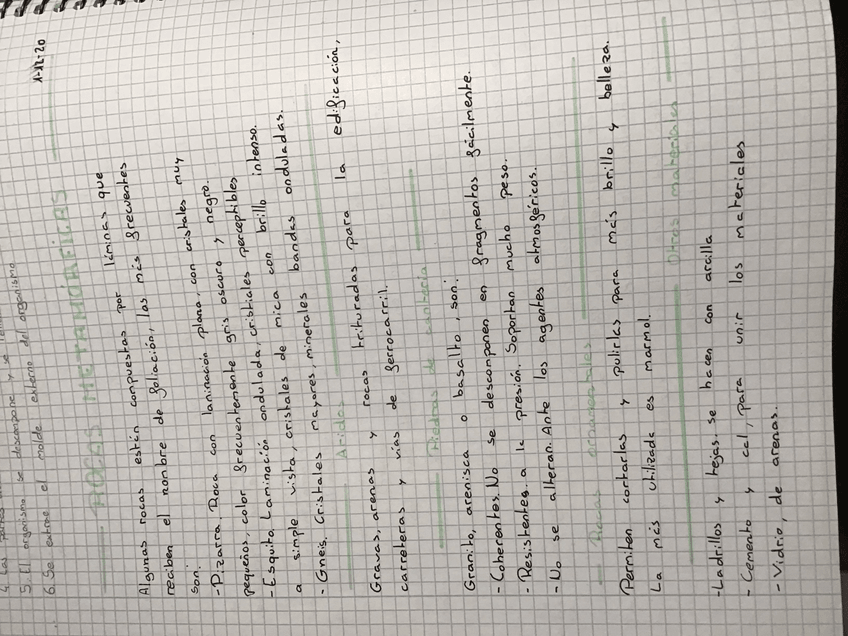 5. El organismo se descompone y se
6. Se extrae el molde externo del organismo.
1-12-20
ROCAS METAMÓRFICAS
Algunas rocas están compuestas por láminas que
reciben el nombre de foliación, las más frecuentes
son:
- Pizarra. Roca con laminación plana, con cristales muy
pequeños, color frecuentemente gris oscuro y negro.
- Esquito. Laminación ondulada, cristiales perceptibles
a simple vista, cristales de mica con brillo intenso.
- Gneis. Cristales mayores, minerales bandas onduladas.
Áridos
Gravas, arenas y rocas trituradas para la edificación,
carreteras y vías de ferrocarril.
Piedras de cantería
Granito, arenisca o basalto, son:
- Coherentes. No se descomponen en fragmentos fácilmente.
- Resistentes a la presión. Soportan mucho peso.
- No se alteran. Ante los agentes atmosféricos.
Rocas ornamentales
Permiten cortarlas y pulirlas para más brillo y belleza.
La más utilizada es marmol.
Otros materiales
- Ladrillos y tejas. se hacen con arcilla
- Cemento y cal, para unir los materiales
- Vidrio, de arenas.